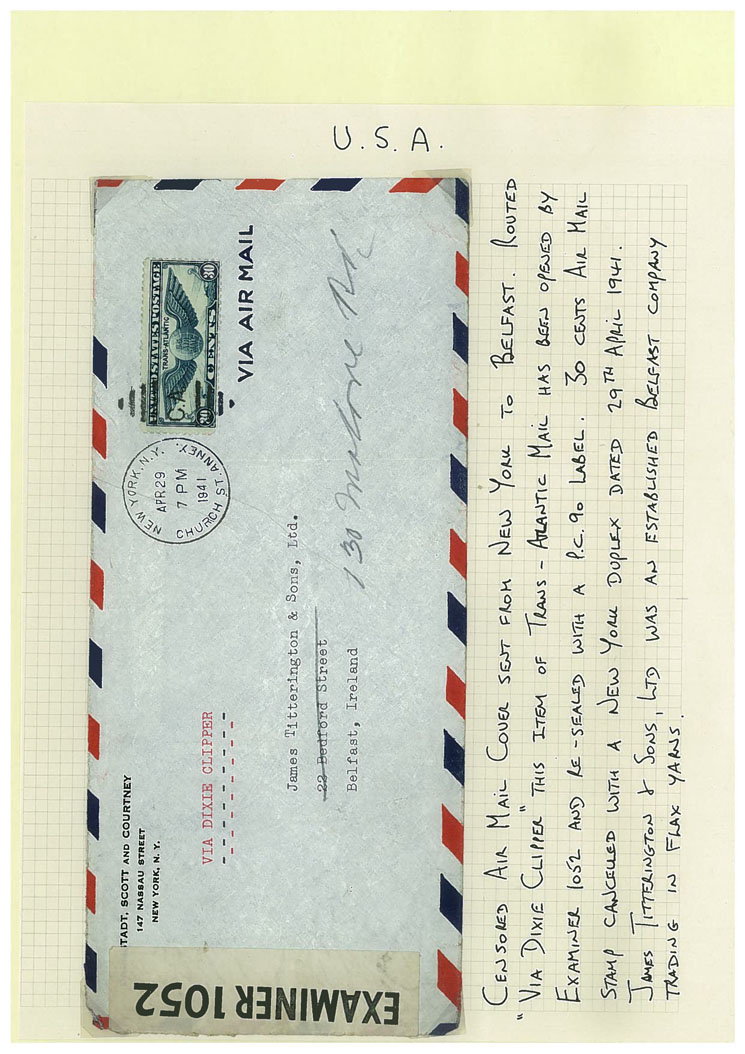 U.S.A.
TADT, SCOTT AND COURTNEY
147 NASSAU STREET
NEW YORK, N. Y.
VIA DIXIE CLIPPER
NEW YORK, N.Y.
APR 29
7 PM
1941
CHURCH ST. ANNEX.
UNITED STATES POSTAGE
TRANS-ATLANTIC
30 CENTS 30
VIA AIR MAIL
James Titterington & Sons, Ltd.
22 Bedford Street
Belfast, Ireland
130 Malone Rd
EXAMINER 1052
CENSORED AIR MAIL COVER SENT FROM NEW YORK TO BELFAST. ROUTED
"VIA DIXIE CLIPPER" THIS ITEM OF TRANS-ATLANTIC MAIL HAS BEEN OPENED BY
EXAMINER 1052 AND RE-SEALED WITH A P.C.90 LABEL. 30 CENTS AIR MAIL
STAMP CANCELLED WITH A NEW YORK DUPLEX DATED 29TH APRIL 1941.
JAMES TITTERINGTON & SONS, LTD WAS AN ESTABLISHED BELFAST COMPANY
TRADING IN FLAX YARNS.